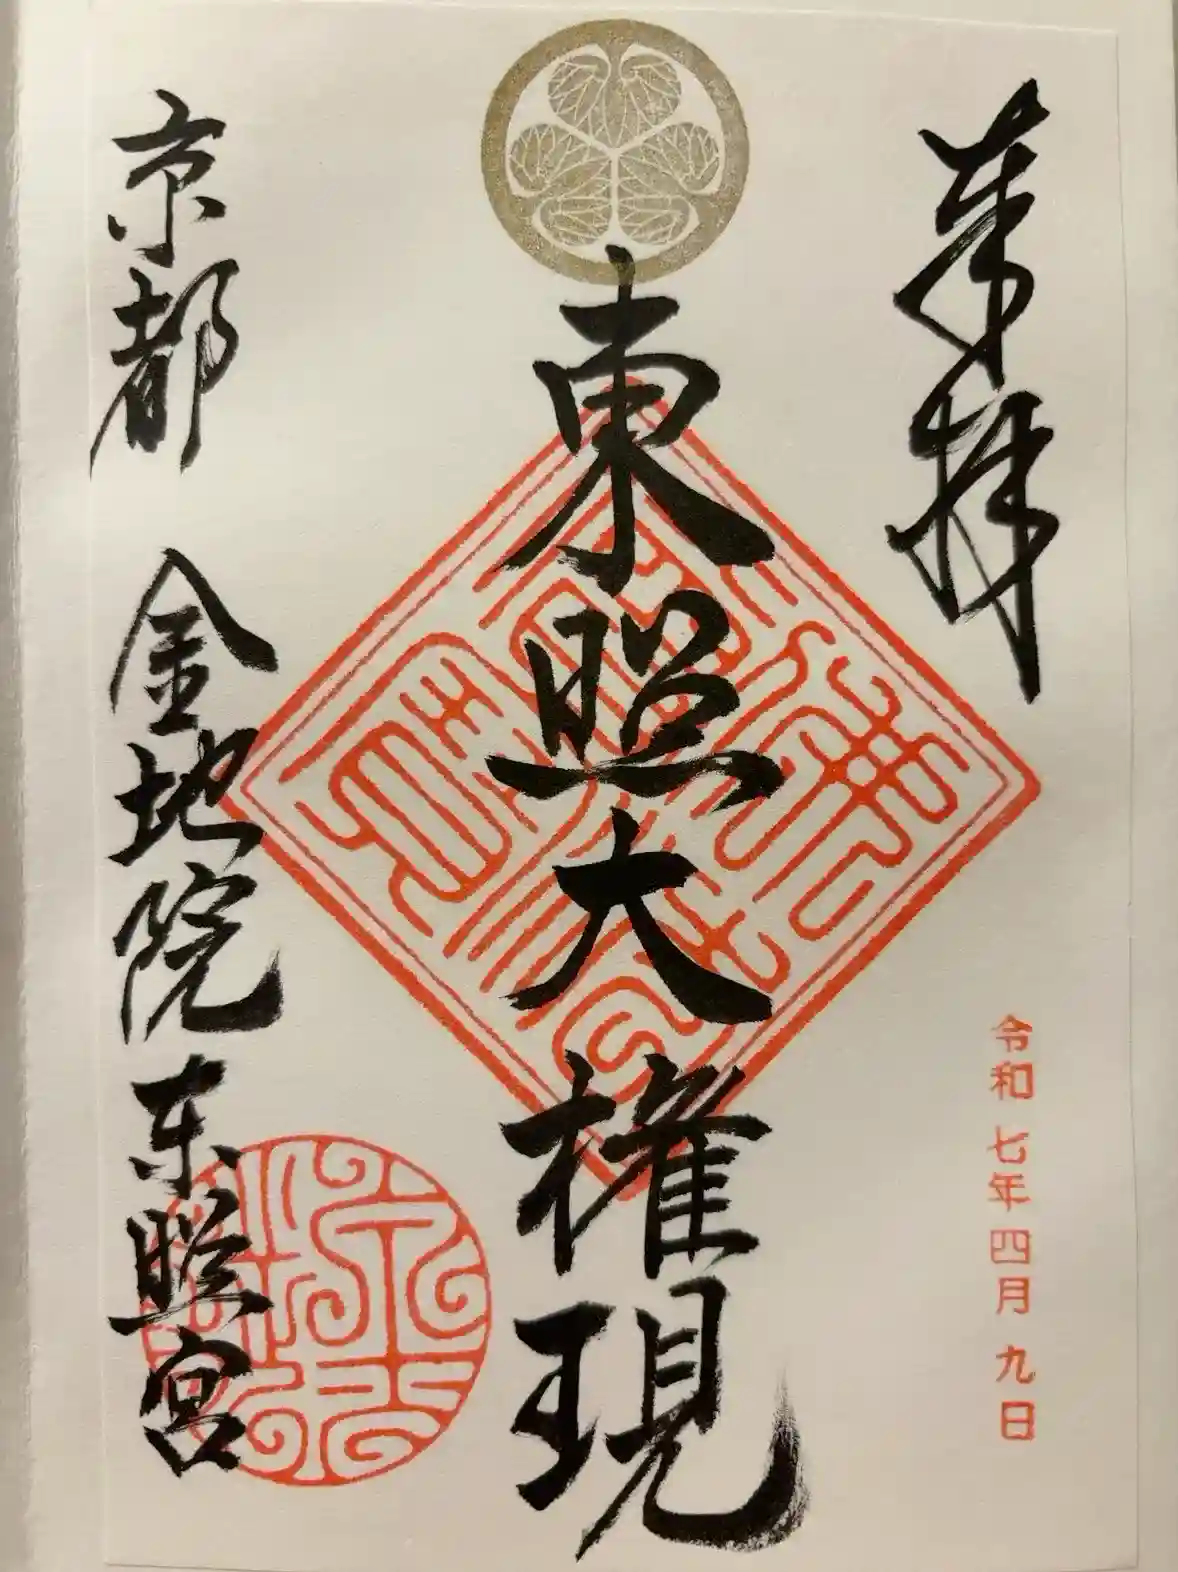 奉拝
令和七年四月九日
東照大権現
京都 金地院东照宮